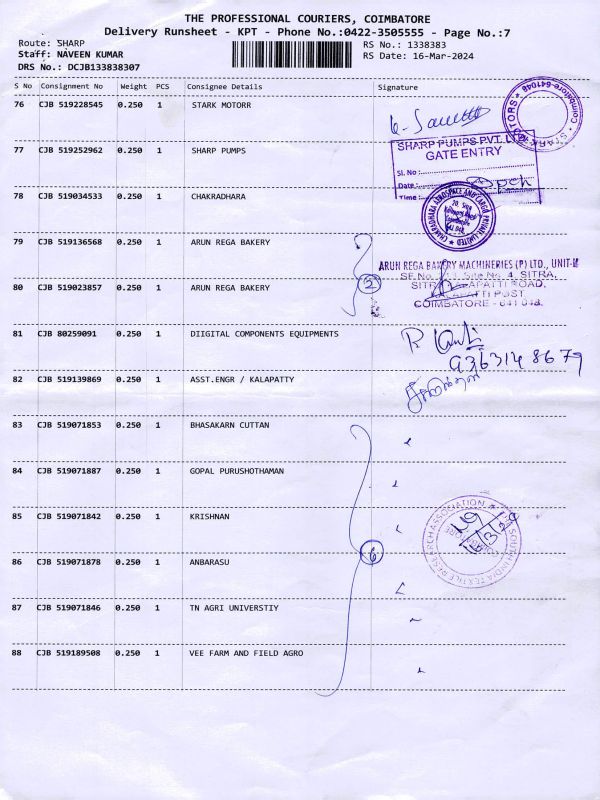 THE PROFESSIONAL COURIERS, COIMBATORE
Delivery Runsheet - KPT - Phone No.:0422-3505555 - Page No.:7
Route: SHARP
RS No.: 1338383
Staff: NAVEEN KUMAR
RS Date: 16-Mar-2024
DRS No.: DCJB133838307
S No Consignment No Weight PCS Consignee Details Signature
76 CJB 519228545 0.250 1 STARK MOTORR
77 CJB 519252962 0.250 1 SHARP PUMPS
SHARP PUMPS PVT. LTD
GATE ENTRY
Sl. No :
Date :
Time :
78 CJB 519034533 0.250 1 CHAKRADHARA
CHAKRADHARA AEROSPACE AND CARGO PRIVATE LIMITED
79 CJB 519136568 0.250 1 ARUN REGA BAKERY
ARUN REGA BAKERY MACHINERIES (P) LTD., UNIT-II
80 CJB 519023857 0.250 1 ARUN REGA BAKERY
2
KALAPATTI POST
COIMBATORE - 641 048.
81 CJB 80259091 0.250 1 DIIGITAL COMPONENTS EQUIPMENTS
9363148679
82 CJB 519139869 0.250 1 ASST.ENGR / KALAPATTY
83 CJB 519071853 0.250 1 BHASAKARN CUTTAN
84 CJB 519071887 0.250 1 GOPAL PURUSHOTHAMAN
85 CJB 519071842 0.250 1 KRISHNAN
THE SOUTH INDIA TEXTILE RESEARCH ASSOCIATION
86 CJB 519071878 0.250 1 ANBARASU
6
87 CJB 519071846 0.250 1 TN AGRI UNIVERSTIY
88 CJB 519189508 0.250 1 VEE FARM AND FIELD AGRO